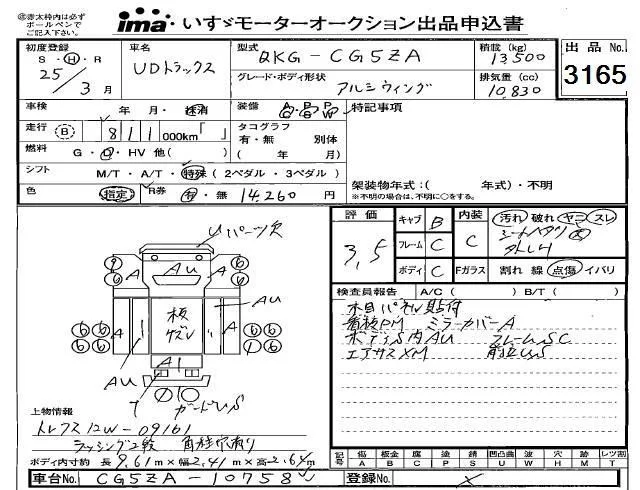 ㊟赤太枠内は必ず
ボールペンで
ご記入下さい。
ima いすゞモーターオークション出品申込書
初度登録
S・H・R
25/3月
車名
UDトラックス
型式
QKG-CG5ZA
積載(kg)
13500
グレード・ボディ形状
アルミウィング
排気量(cc)
10,830
出品 No.
3165
車検 年 月・抹消
装備 A/C P/S P/W
特記事項
走行 (B) 811,000km「 」
タコグラフ
有・無 別体
( 年 月)
燃料 G・D・HV 他( )
シフト M/T・A/T・特殊(2ペダル・3ペダル)
架装物年式:( 年式)・不明
※不明の場合は、不明に○をする。
色 指定 R券 有・無 14,260円
評価
3,5
キャブ B
フレーム C
ボディ C
内装 C
Fガラス
汚れ 破れ ヤニ スレ
シートヘタリ 大
割れ 線 点傷 イバリ
検査員報告 A/C( ) B/T( )
木目パネル貼付
看板PM ミラーカバーA
ボディS内AU フレームSC
エアサスXM
リパーツ欠
6 A AU A 6
6 6
板
AU
6 6 A A 6 6
6 6 1 6
A1
AU
7
ガードUS
上物情報
トレクス12W-09161
ラッシング2段 角柱穴有り
ボディ内寸約 長9.61m×幅2.41m×高2.64m
車台No. CG5ZA-10758
登録No.
記号
傷 板金 腐 塗 錆 凹凸曲 波 穴 時 レツ割
A B C P S U W H M T